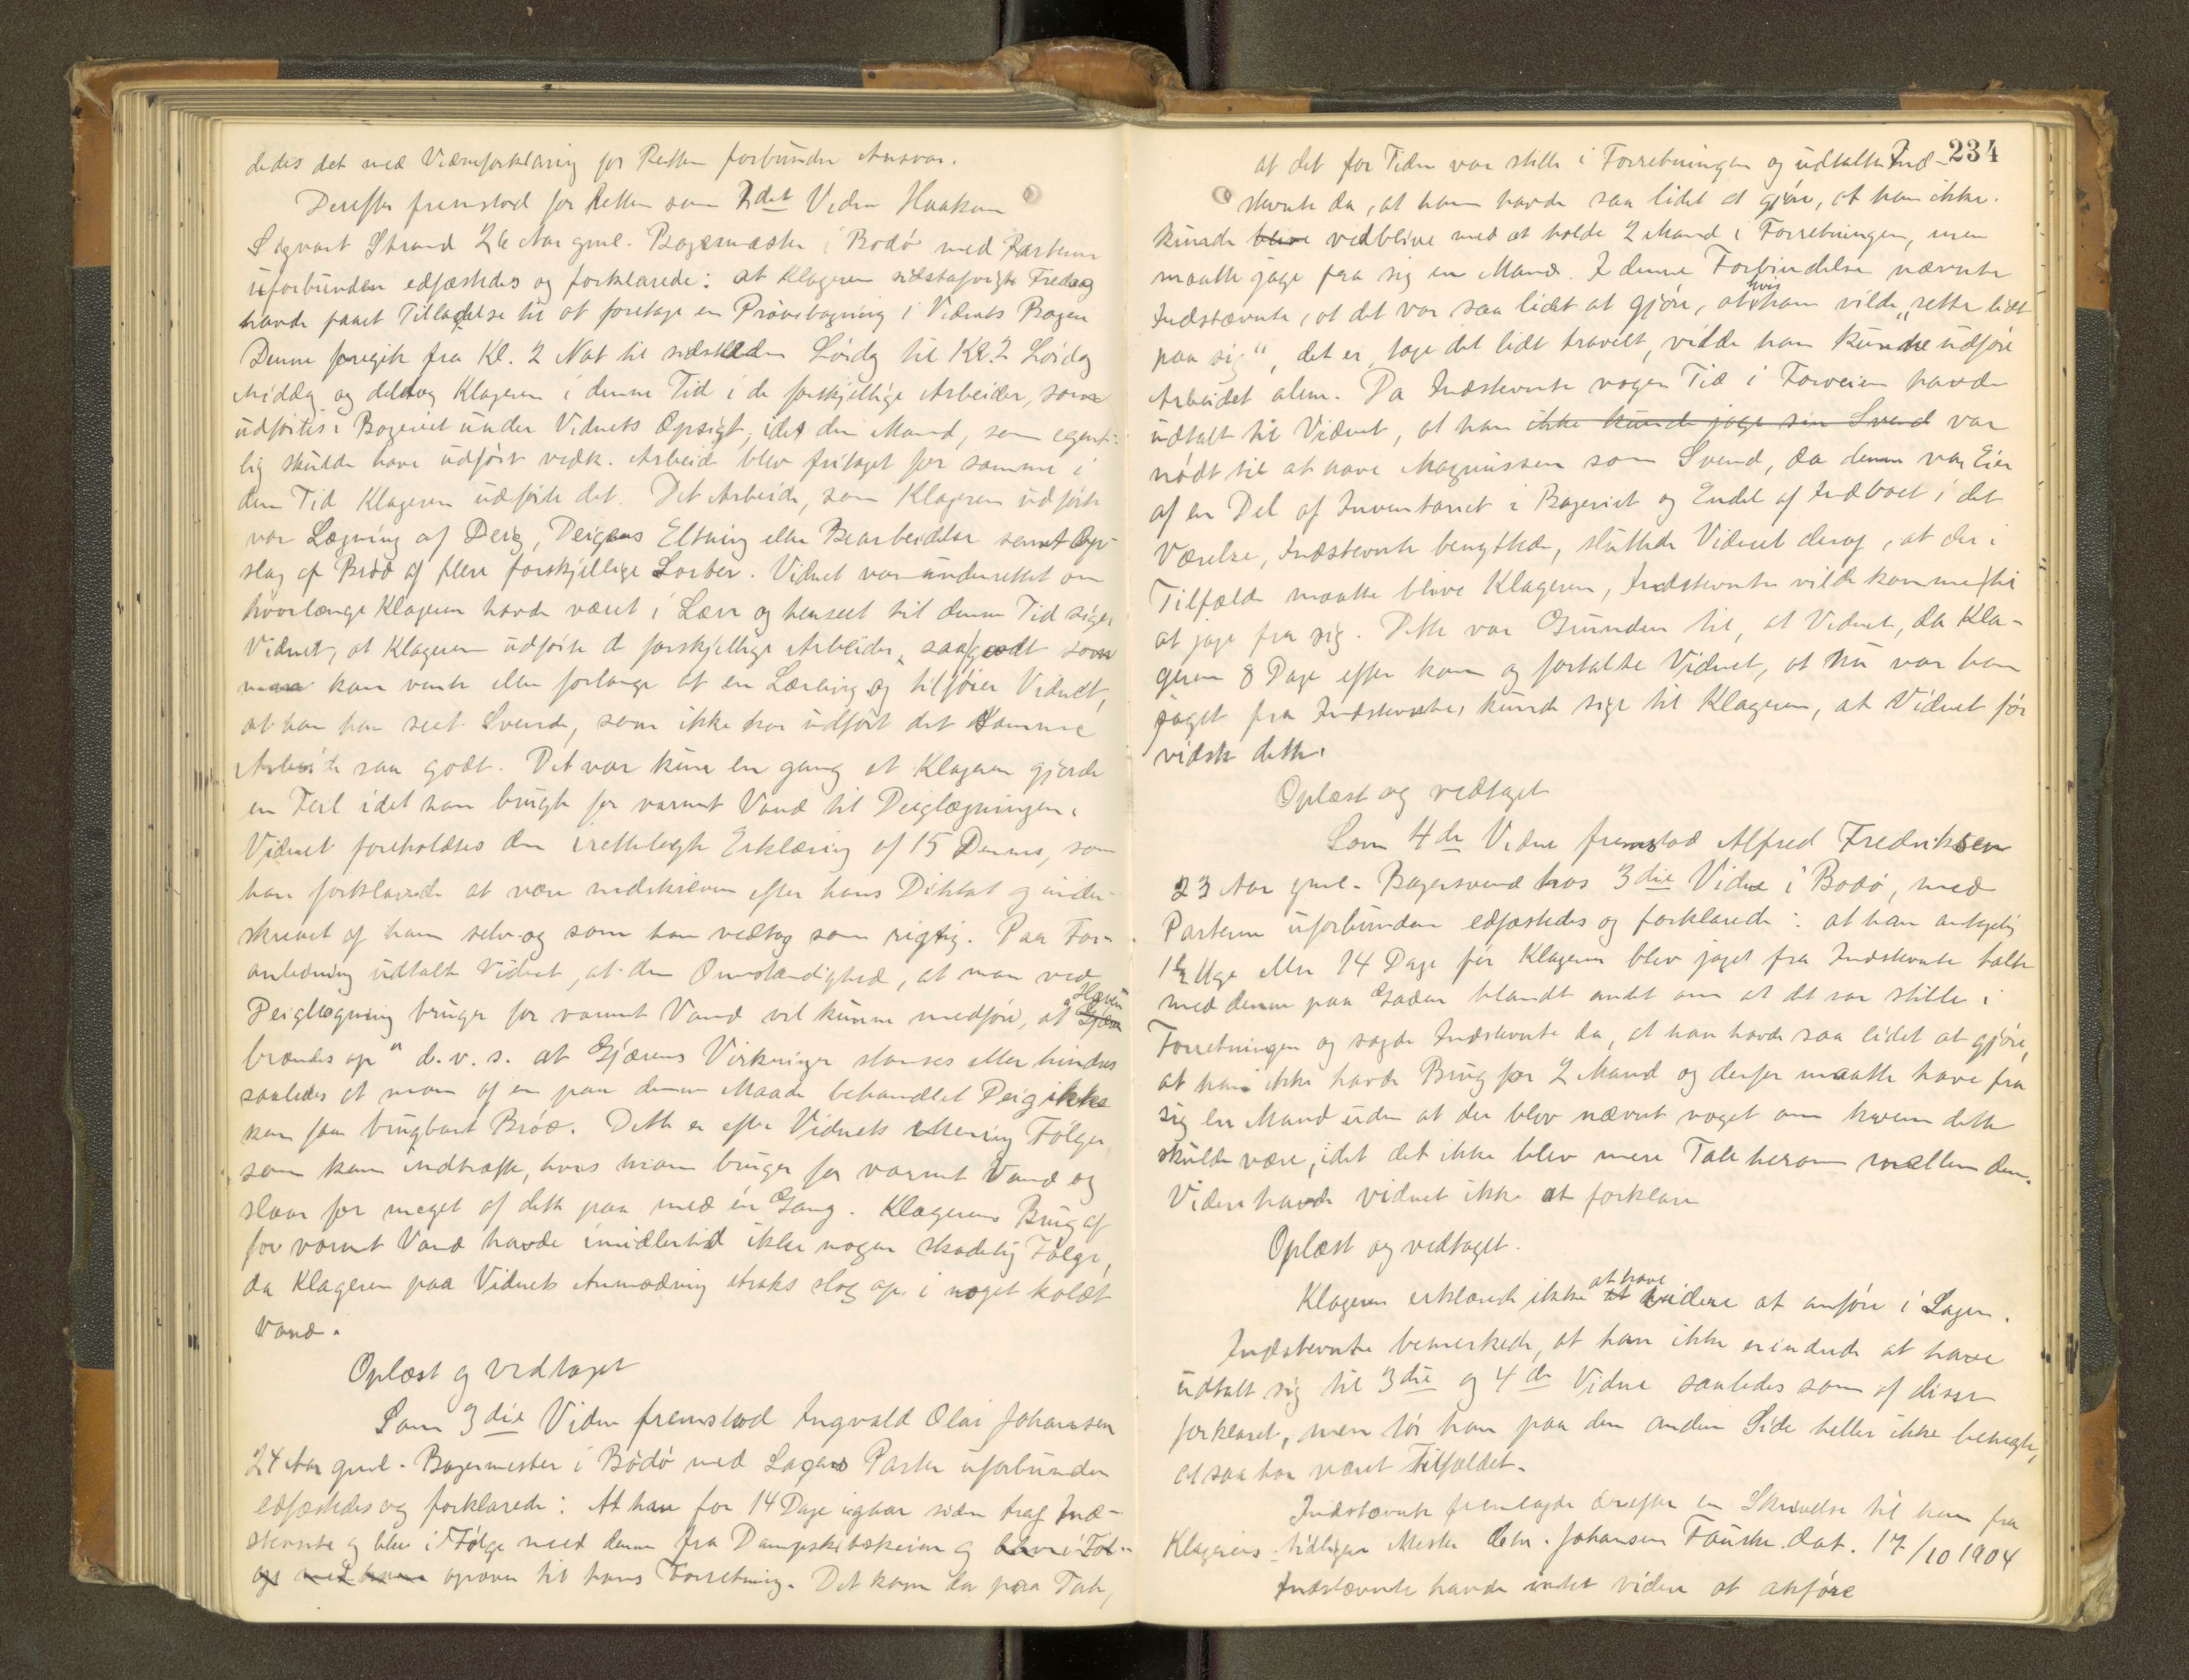 dedes det med Vidneforklaring for Retten forbundne Ansvar.
Derefter fremstod for Retten som 2det Vidne Haakon
Sigvart Strand 26 Aar gml. Bagermester i Bodø med Parterne
uforbunden edfæstedes og forklarede: at Klageren sidstafvigte Fredag
havde faaet Tilladelse til at foretage en Prøvebagning i Vidnets Bageri
Denne foregik fra Kl. 2 Nat til sidstleden Lørdag til Kl. 2 Lørdag
Middag og deltog Klageren i denne Tid i de forskjellige Arbeider, som
udførtes i Bageriet under Vidnets Opsigt, idet den Mand, som egent-
lig skulde have udført vedk. Arbeide blev fritaget for samme i
den Tid Klageren udførte det. Det Arbeide, som Klageren udførte
var Lægning af Deig, Deigens Eltning eller Bearbeidelse samt Op-
slag af Brød af flere forskjellige Sorter. Vidnet var underrettet om
hvorlænge Klageren havde været i Lære og henseet til denne Tid siger
Vidnet, at Klageren udførte de forskjellige Arbeider, saa godt som
man kan vente eller forlange af en Lærling og tilføier Vidnet,
at han har seet Svende, som ikke har udført det samme
Arbeide saa godt. Det var kun en gang at Klageren gjorde
en Feil idet han brugte for varmt Vand til Deiglægningen.
Vidnet foreholdtes den irettelagte Erklæring af 15 Dennes, som
han forklarede at være nedskreven efter hans Diktat og under-
skrevet af ham selv og som han vedtog som rigtig. Paa For-
anledning udtalte Vidnet, at den Omstændighed, at man ved
Deiglægning bruger for varmt Vand vil kunne medføre, at "Hæven
brændes op" d.v.s. at Gjærens Virkninger stanses eller hindres
saaledes at man af en paa denne Maade behandlet Deig ikke
kan faa brugbart Brød. Dette er efter Vidnets Mening Følger
som kan indtræffe, hvis man bruger for varmt Vand og
slaar for meget af dette paa med en Gang. Klagerens Brug af
for varmt Vand havde imidlertid ikke nogen skadelig Følge,
da Klageren paa Vidnets Anmodning straks slog op i noget koldt
Vand.
Oplæst og vedtaget
Som 3die Vidne fremstod Ingvald Olai Johansen
24 Aar gml. Bagermester i Bodø med Sagens Parter uforbunden
edfæstedes og forklarede: At han for 14 Dage igaar siden traf Ind-
stevnte og blev i Følge med denne fra Dampskibskaien og blev i Føl-
ge med ham opover til hans Forretning. Det kom da paa Tale,
234
at det for Tiden var stille i Forretningen og udtalte Ind-
stevnte da, at han havde saa lidet at gjøre, at han ikke
kunde blive vedblive med at holde 2 Mand i Forretningen, men
maatte jage fra sig en Mand. I denne Forbindelse nævnte
Indstævnte, at det var saa lidet at gjøre, at hvis han vilde "sette lidt
paa sig", det er, tage det lidt travelt, vilde han kunde udføre
Arbeidet alene. Da Indstevnte nogen Tid i Forveien havde
udtalt til Vidnet, at han ikke kunde jage sin Svend var
nødt til at have Magnussen som Svend, da denne var Eier
af en Del af Inventariet i Bageriet og Endel af Indboet i det
Værelse, Indstevnte benyttede, sluttede Vidnet deraf, at der i
Tilfælde maatte blive Klageren, Indstevnte vilde komme til
at jage fra sig. Dette var Grunden til, at Vidnet, da Kla-
geren 8 Dage efter kom og fortalte Vidnet, at nu var han
jaget fra Indstevnte, kunde sige til Klageren, at Vidnet før
vidste dette.
Oplæst og vedtaget
Som 4de Vidne fremstod Alfred Fredriksen
23 Aar gml. Bagersvend hos 3die Vidne i Bodø, med
Parterne uforbunden edfæstedes og forklarede: at han antagelig
1½ Uge eller 14 Dage før Klageren blev jaget fra Indstevnte talte
med denne paa Gaden blandt andet om at det var stille i
Forretningen og sagde Indstevnte da, at han havde saa lidet at gjøre,
at han ikke havde Brug for 2 Mand og derfor maatte have fra
sig en Mand uden at der blev nævnt noget om hvem dette
skulde være, idet det ikke blev mere Tale herom mellem dem.
Videre havde vidnet ikke at forklare
Oplæst og vedtaget.
Klageren erklærede ikke at have videre at anføre i Sagen.
Indstevnte bemerkede, at han ikke erindrede at have
udtalt sig til 3die og 4de Vidne saaledes som af disse
forklaret, men tør han paa den anden Side heller ikke benegte,
at saa har været Tilfældet.
Indstævnte fremlagde derefter en Skrivelse til ham fra
Klagerens tidligere Mester Johansen Fauske dat. 17/10 1904
Indstævnte havde intet videre at anføre